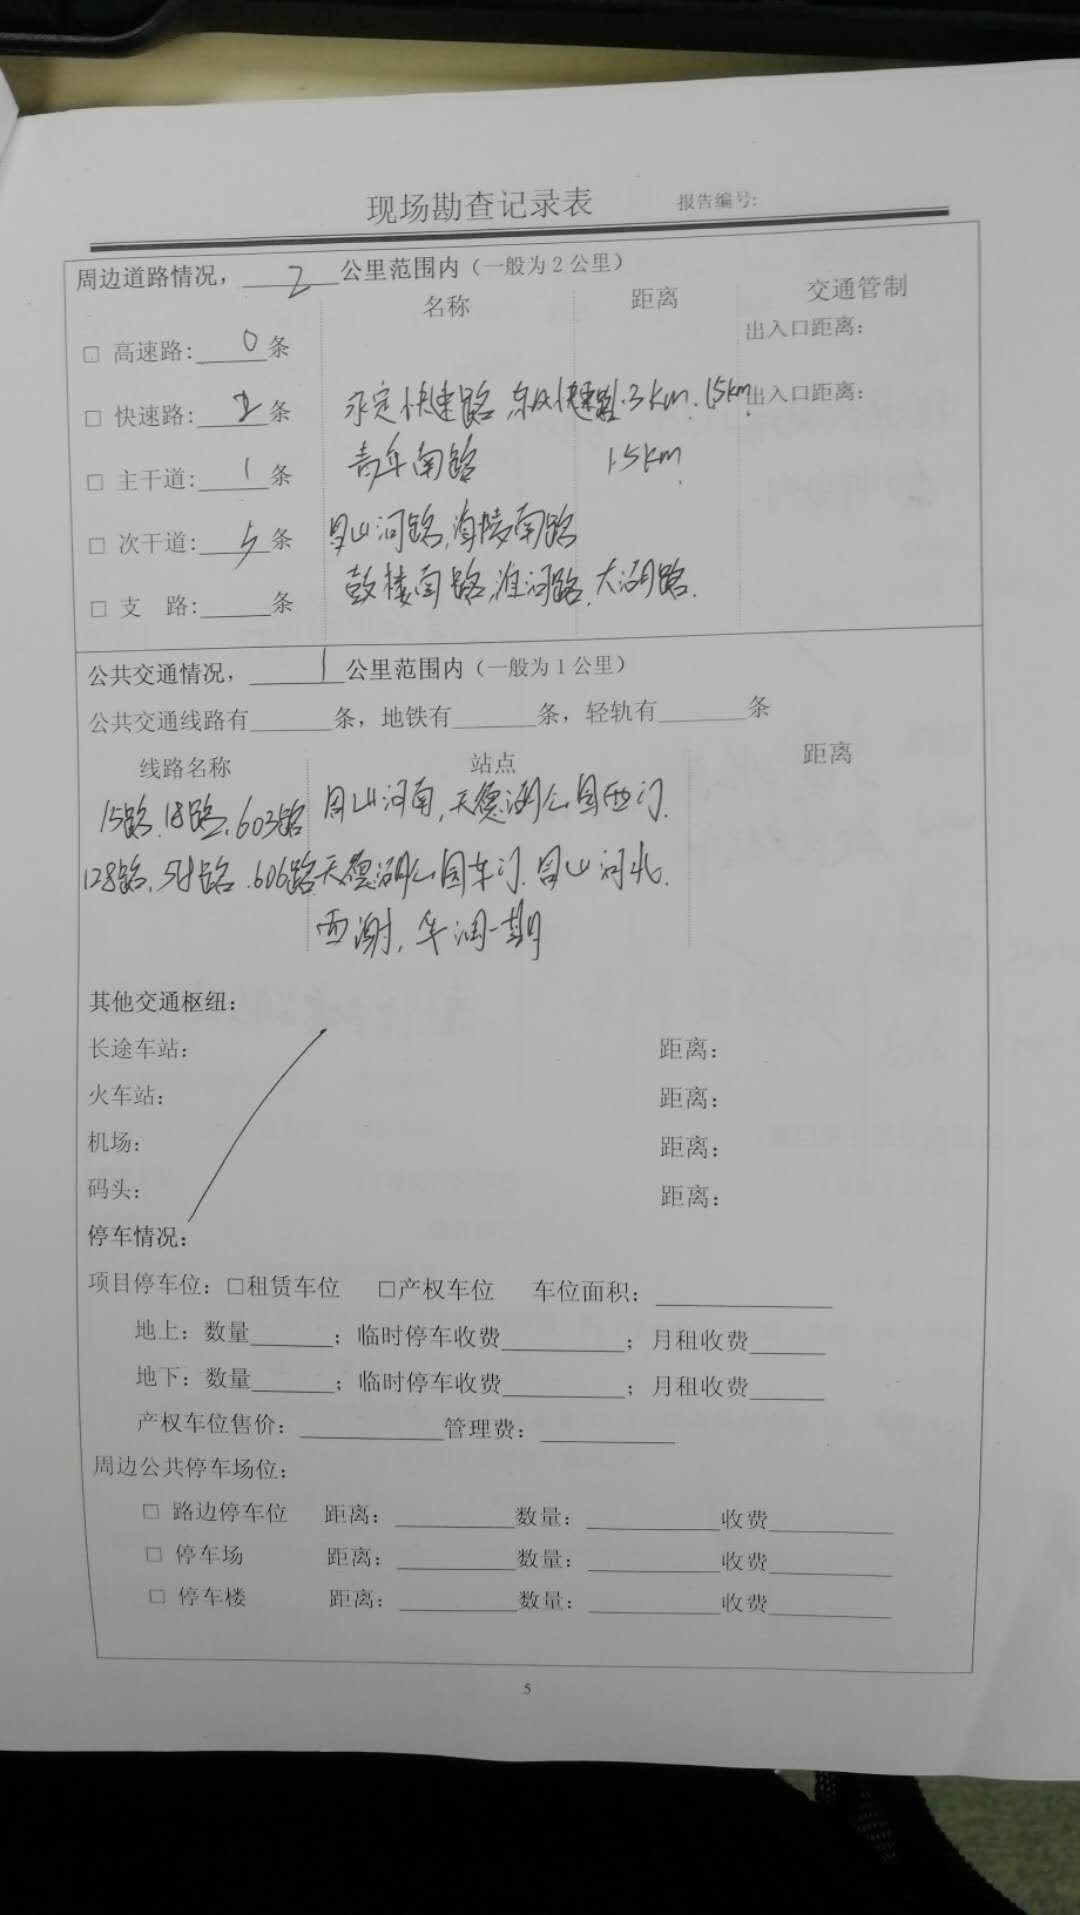 现场勘查记录表 报告编号:
周边道路情况, 2 公里范围内（一般为2公里）
名称 距离 交通管制
□ 高速路: 0 条 出入口距离:
□ 快速路: 2 条 永定快速路 快速路 3km. 1.5km 出入口距离:
□ 主干道: 1 条 青年南路 1.5km
□ 次干道: 5 条 凤山河路,海陵南路
□ 支 路: 条 鼓楼南路,淮河路,大湖路.
公共交通情况, 1 公里范围内（一般为1公里）
公共交通线路有 条, 地铁有 条, 轻轨有 条
线路名称 站点 距离
15路.18路.603路 周山河南,天德湖公园西门.
128路. 路.606路 天德湖公园东门.周山河北.
西谢,华润一期
其他交通枢纽:
长途车站: 距离:
火车站: 距离:
机场: 距离:
码头: 距离:
停车情况:
项目停车位: □租赁车位 □产权车位 车位面积:
地上: 数量 ; 临时停车收费 ; 月租收费
地下: 数量 ; 临时停车收费 ; 月租收费
产权车位售价: 管理费:
周边公共停车场位:
□ 路边停车位 距离: 数量: 收费
□ 停车场 距离: 数量: 收费
□ 停车楼 距离: 数量: 收费
5